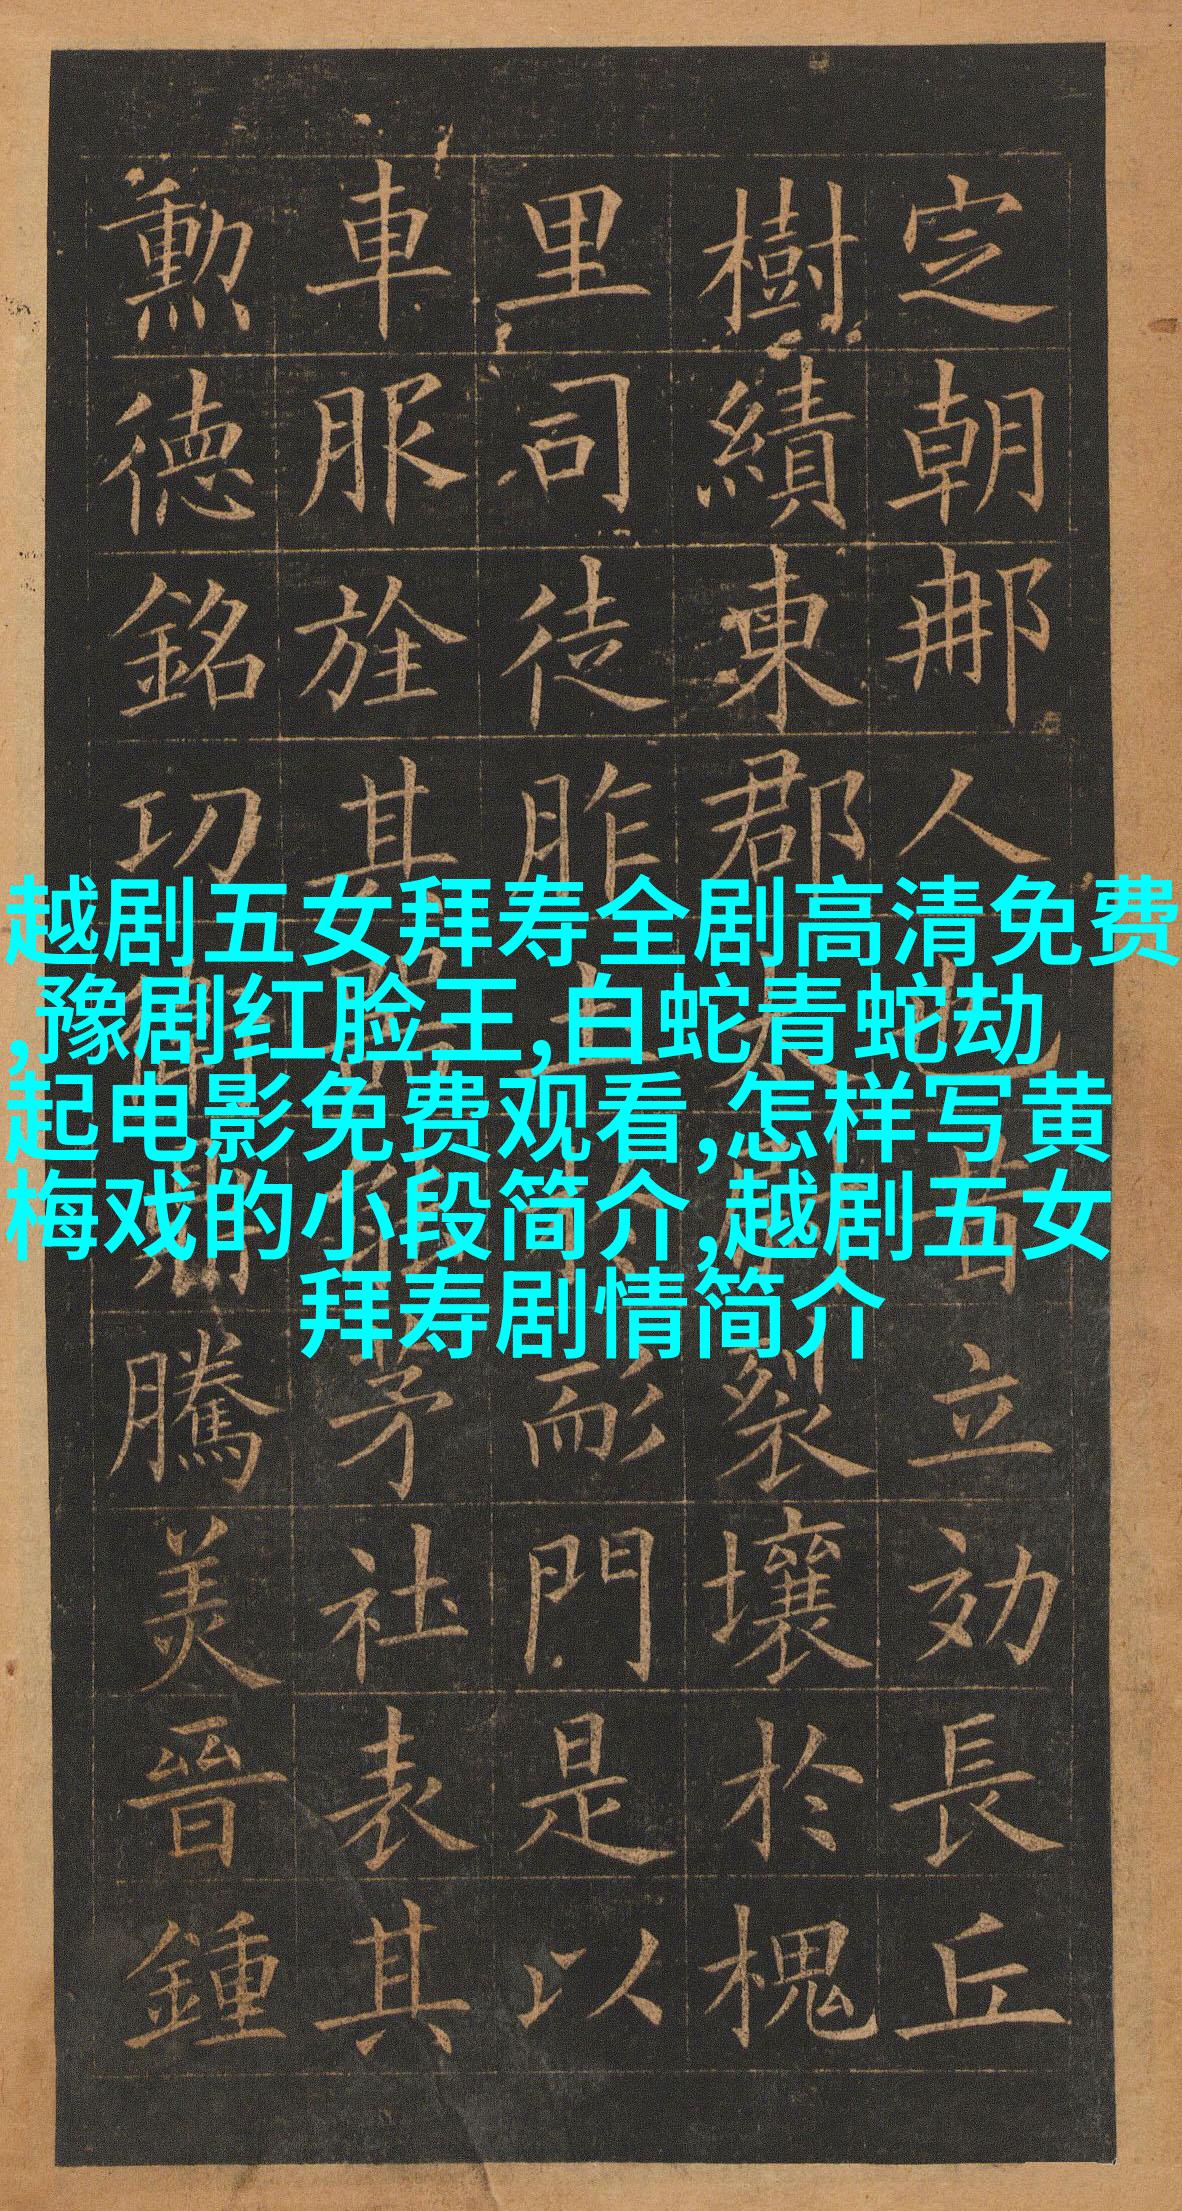 越剧五女拜寿全剧高清免费
,豫剧红脸王,白蛇青蛇劫
起电影免费观看,怎样写黄
梅戏的小段简介,越剧五女
拜寿剧情简介
定朝那人也昔立効長丘
樹績東郡太尉裂壤於槐
里司徒胙土於耏門是以
車服旌其器能茅社表其
勳德銘功衛鼎騰美晉鍾